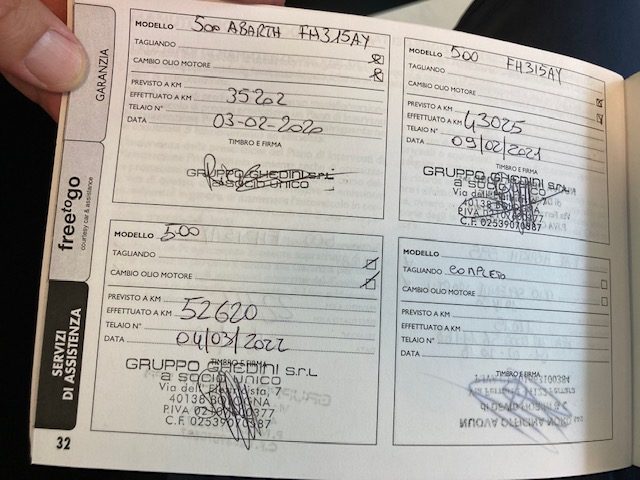 GARANZIA
freetogo
courtesy car & assistance
SERVIZI
DI ASSISTENZA
32
MODELLO 500 ABARTH FH315AY
TAGLIANDO
CAMBIO OLIO MOTORE
PREVISTO A KM
EFFETTUATO A KM 35202
TELAIO N°
DATA 03-02-2020
TIMBRO E FIRMA
GRUPPO GHEDINI s.r.l.
a socio unico
MODELLO 500 FH315AY
TAGLIANDO
CAMBIO OLIO MOTORE
PREVISTO A KM
EFFETTUATO A KM 43025
TELAIO N°
DATA 09/02/2021
TIMBRO E FIRMA
GRUPPO GHEDINI S.r.L
a socio unico
40138
P.IVA
C.F. 02539070387
MODELLO 500
TAGLIANDO
CAMBIO OLIO MOTORE
PREVISTO A KM
EFFETTUATO A KM 52620
TELAIO N°
DATA 04/03/2022
TIMBRO E FIRMA
GRUPPO GHEDINI S.r.L
a socio unico
40138
P.IVA
C.F. 02539070387
MODELLO
TAGLIANDO
CAMBIO OLIO MOTORE
PREVISTO A KM
EFFETTUATO A KM
TELAIO N°
DATA
TIMBRO E FIRMA
NUOVA OFFICINA NORD